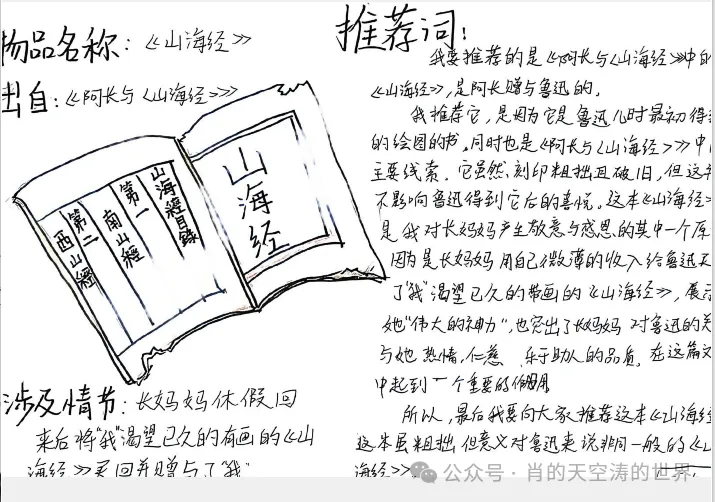 物品名称:《山海经》
出自:《阿长与《山海经》》
山海经
山海經目錄
第一
南山經
第二
西山經
涉及情节:长妈妈休假回
来后将"我"渴望已久的有画的《山
海经》买回并赠与了"我"
推荐词:
我要推荐的是《阿长与《山海经》》中的
《山海经》,是阿长赠与鲁迅的。
我推荐它,是因为它是鲁迅儿时最初得
的绘图的书,同时也是《阿长与《山海经》》中
主要线索。它虽然刻印粗拙且破旧,但这
不影响鲁迅得到它后的喜悦。这本《山海经》
是我对长妈妈产生敬意与感恩的其中一个原
因为是长妈妈用自己微薄的收入给鲁迅买
了"我"渴望已久的带画的《山海经》,展
她"伟大的神力",也突出了长妈妈对鲁迅的关
与她热情,仁慈、乐于助人的品质。在这篇文
中起到一个重要的作用。
所以,最后我要向大家推荐这本《山海经
这本虽粗拙,但意义对鲁迅来说非同一般的《山
海经》
公众号·肖的天空涛的世界